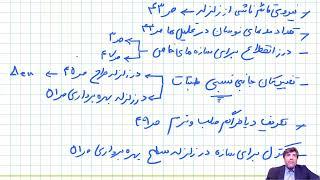 نیروی مؤثر ناشی از زلزله ← ص ۴۳
تعداد مدهای نوسان در تحلیل ها ص ۴۴
درز انقطاع برای سازه های خاص ← ص ۳
ص ۴۷
تغییر مکان جانبی نسبی طبقات ← در زلزله طرح ص ۴۵ ← Δeu
در زلزله بهره برداری ص ۵۱
تعریف دیافراگم صلب و نرم ص ۴۹
کنترل برای سازه در زلزله سطح بهره برداری ص ۵۱